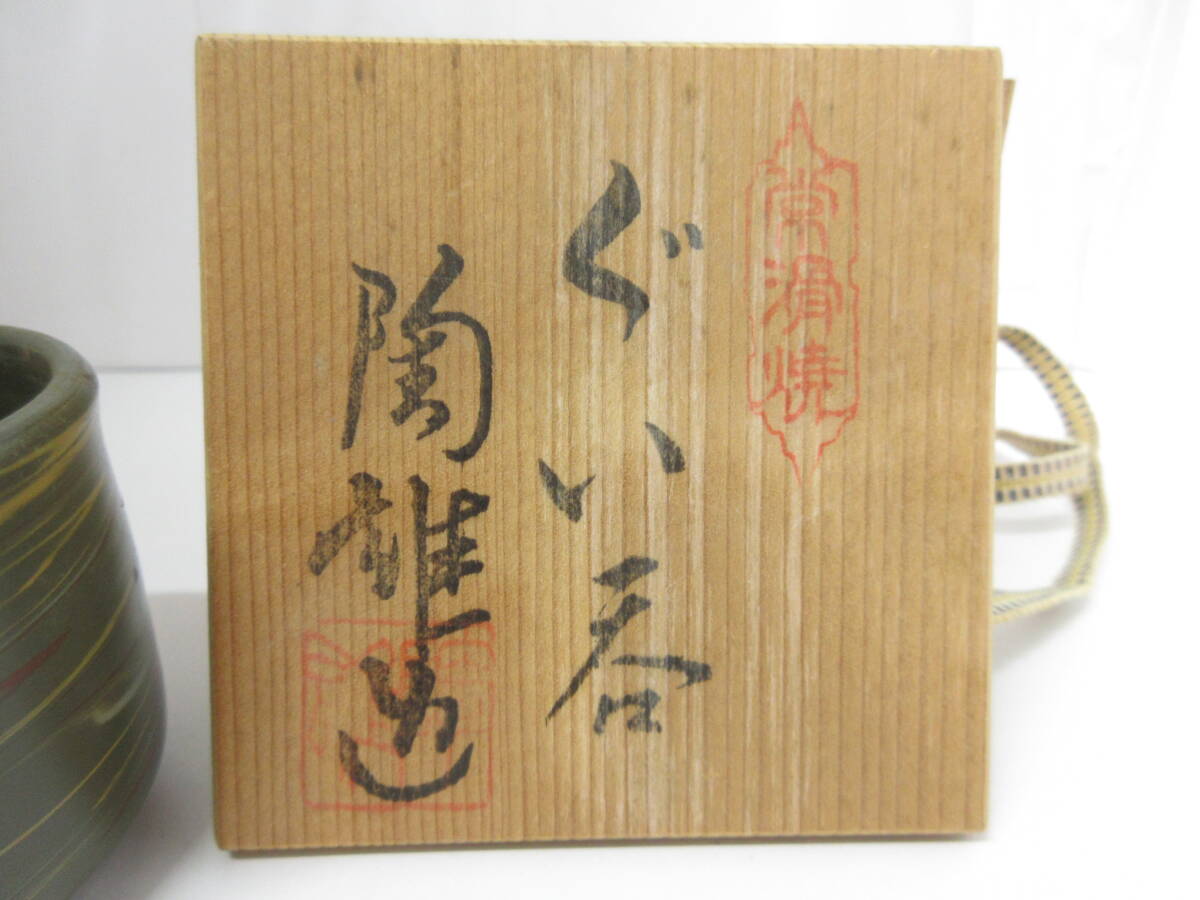 常滑焼
ぐい呑
陶雄造